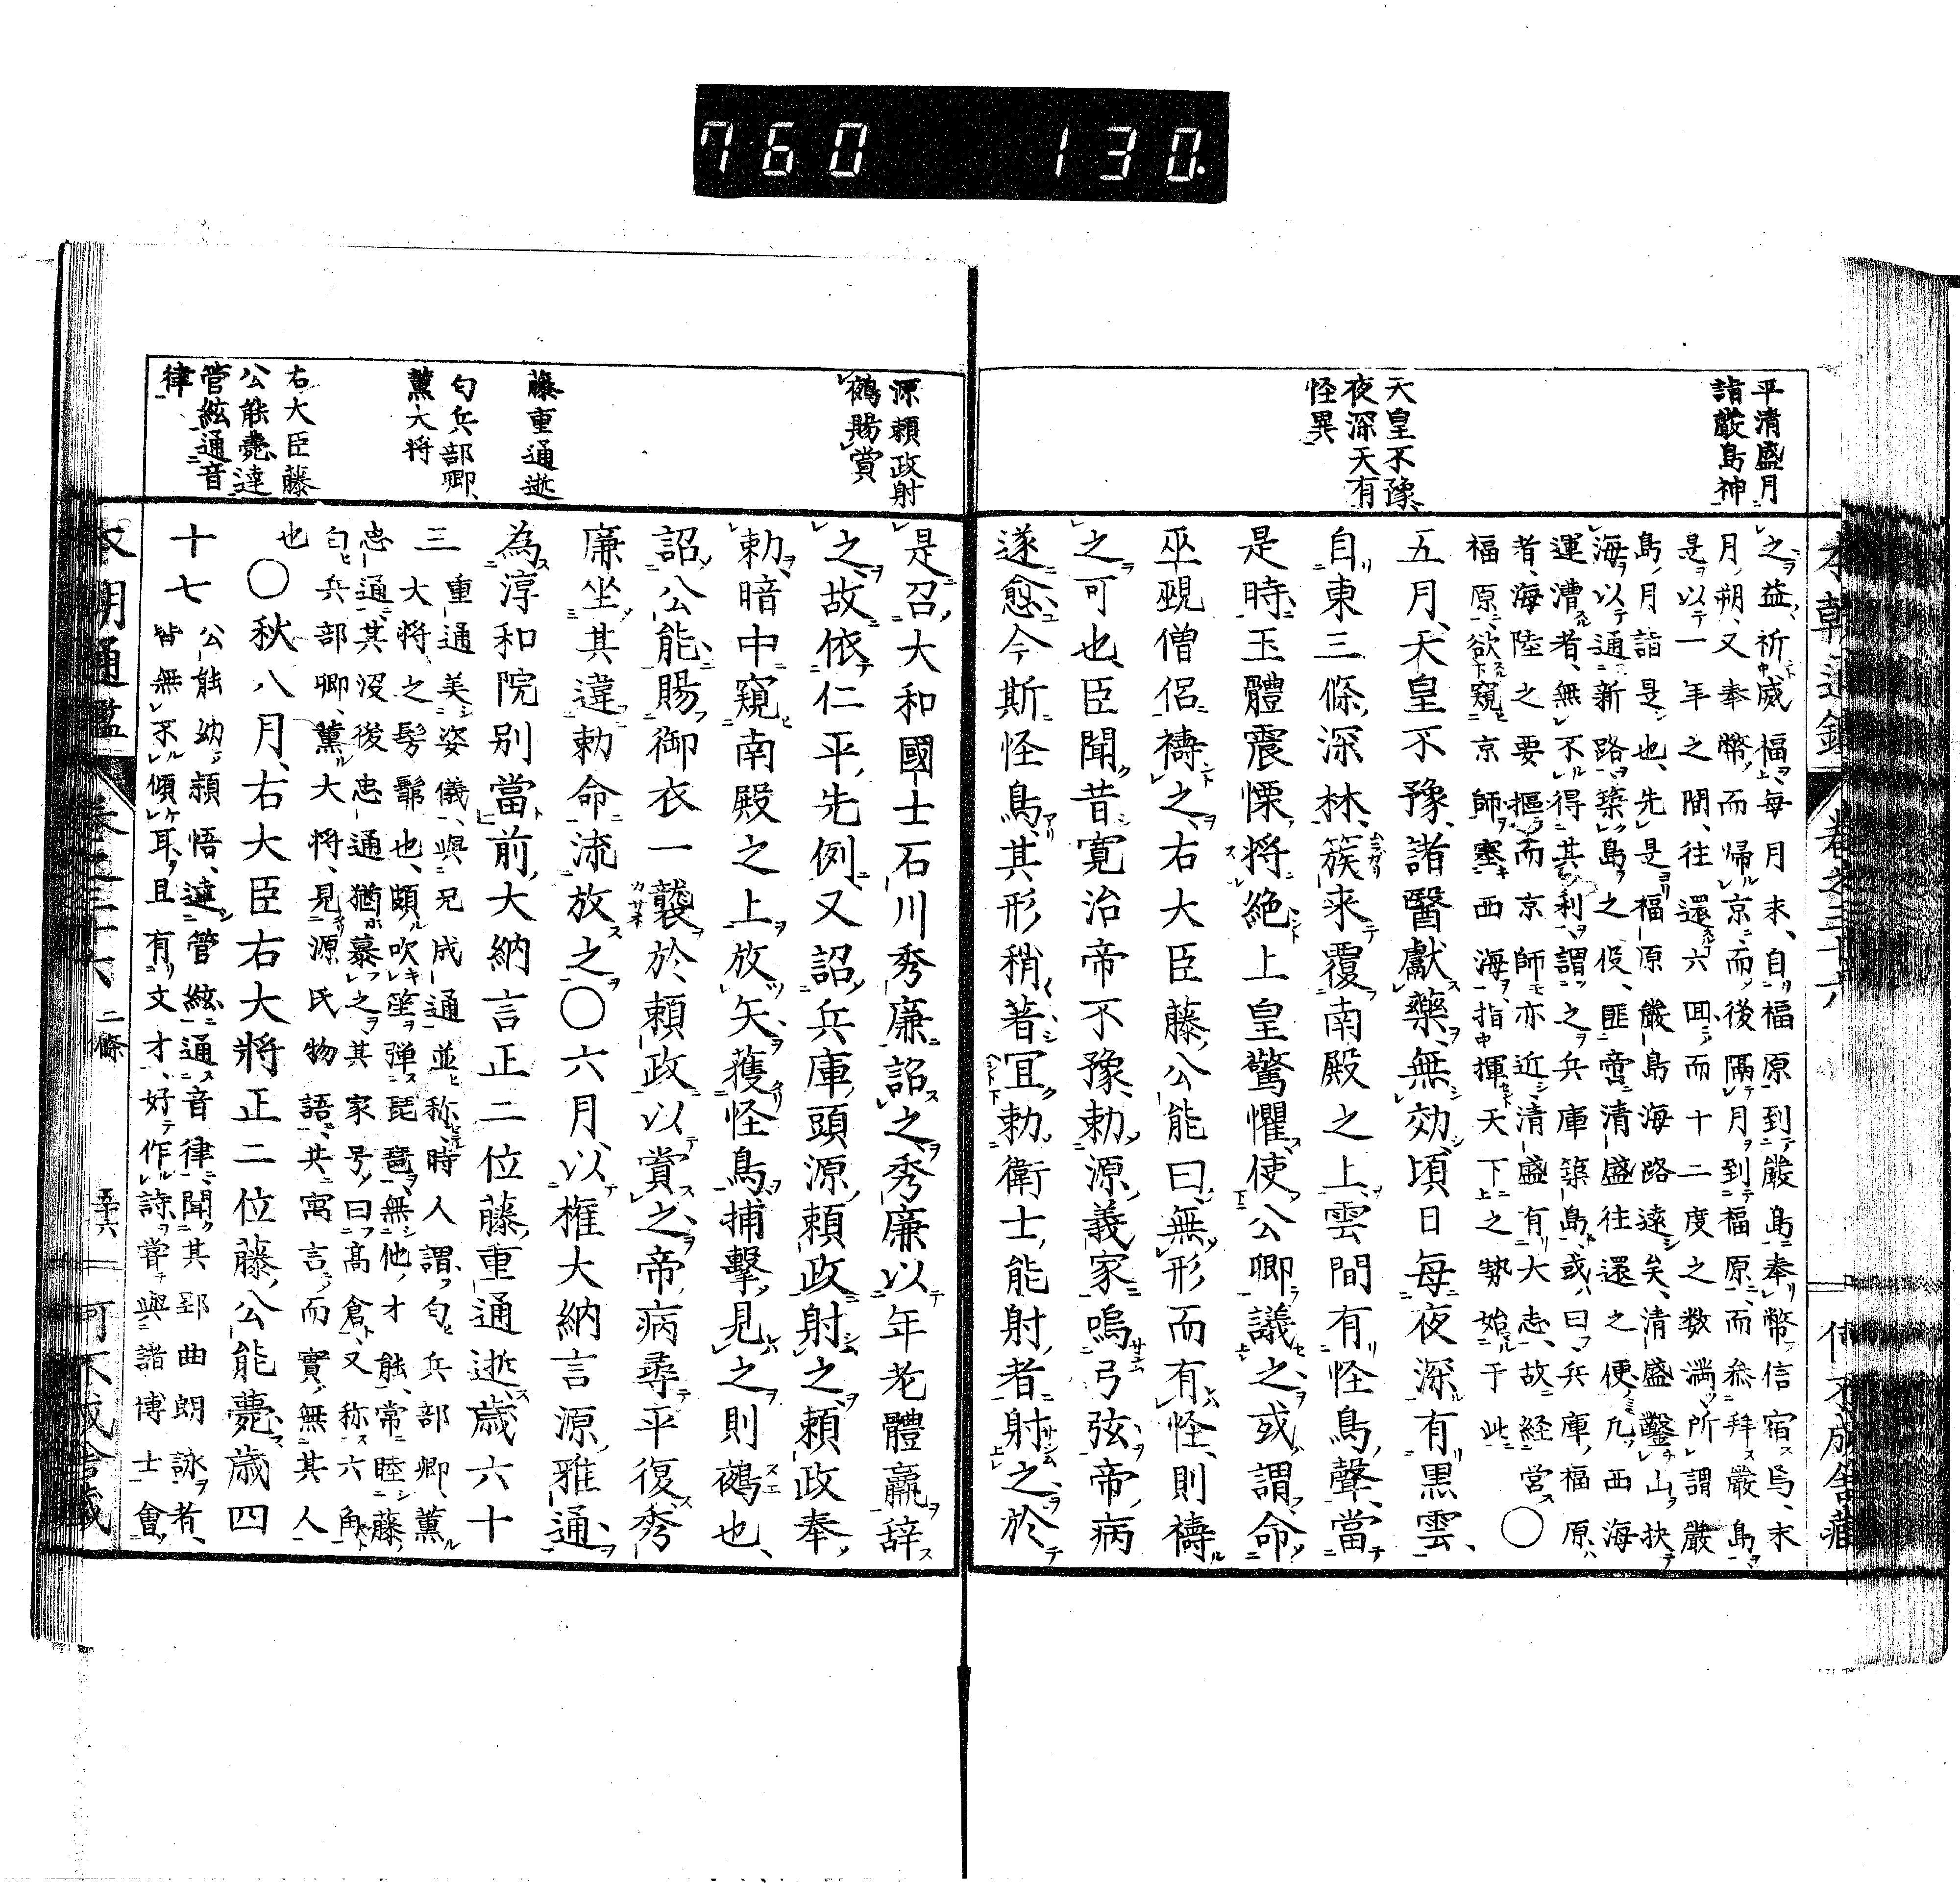 760 130
平清盛月
詣嚴島神
天皇不豫
夜深天有
怪異
之益祈威福每月末自福原到嚴島奉幣信宿焉末
月朔又奉幣而歸京而後隔月到福原而參拜嚴島
是以一年之間往還六回而十二度之数滿所謂嚴
島月詣是也先是福原嚴島海路遠矣清盛鑿山扶
海以通新路築島之役匪啻清盛往還之便凡西海
運漕者無不得其利謂之兵庫築島或曰兵庫福原
者海陸之要摳而京師亦近清盛有大志故経営
福原欲窺京師塞西海指揮天下之勢始于此〇
五月天皇不豫諸醫獻藥無効頃日每夜深有黒雲
自東三條深林簇来覆南殿之上雲間有怪鳥聲當
是時玉體震慄将絶上皇驚懼使公卿議之或謂命
巫覡僧侶禱之右大臣藤公能曰無形而有怪則禱
之可也臣聞昔寛治帝不豫勅源義家鳴弓弦帝病
遂愈今斯怪鳥其形稍著冝勅衛士能射者射之於
源頼政射
鵺賜賞
藤重通逝
匂兵部卿
薫大将
右大臣藤
公能薨達
管絃通音
律
是召大和國士石川秀廉詔之秀廉以年老體羸辞
之故依仁平先例又詔兵庫頭源頼政射之頼政奉
勅暗中窺南殿之上放矢獲怪鳥捕擊見之則鵺也
詔公能賜御衣一襲於頼政以賞之帝病尋平復秀
廉坐其違勅命流放之〇六月以権大納言源雅通
為淳和院别當前大納言正二位藤重通逝歳六十
三重通美姿儀與兄成通並称時人謂匂兵部卿薫
大将之髣髴也頗吹笙弾琵琶無他才能常睦藤
忠通其没後忠通猶慕之其家号曰高倉又称六角
匂兵部卿薫大将見源氏物語共寓言而實無其人
也〇秋八月右大臣右大将正二位藤公能薨歳四
十七公能幼頴悟達管絃通音律聞其郢曲朗詠者
皆無不傾耳且有文才好作詩嘗與諸博士會
本朝通鑑 卷之三十六 二條 五十六